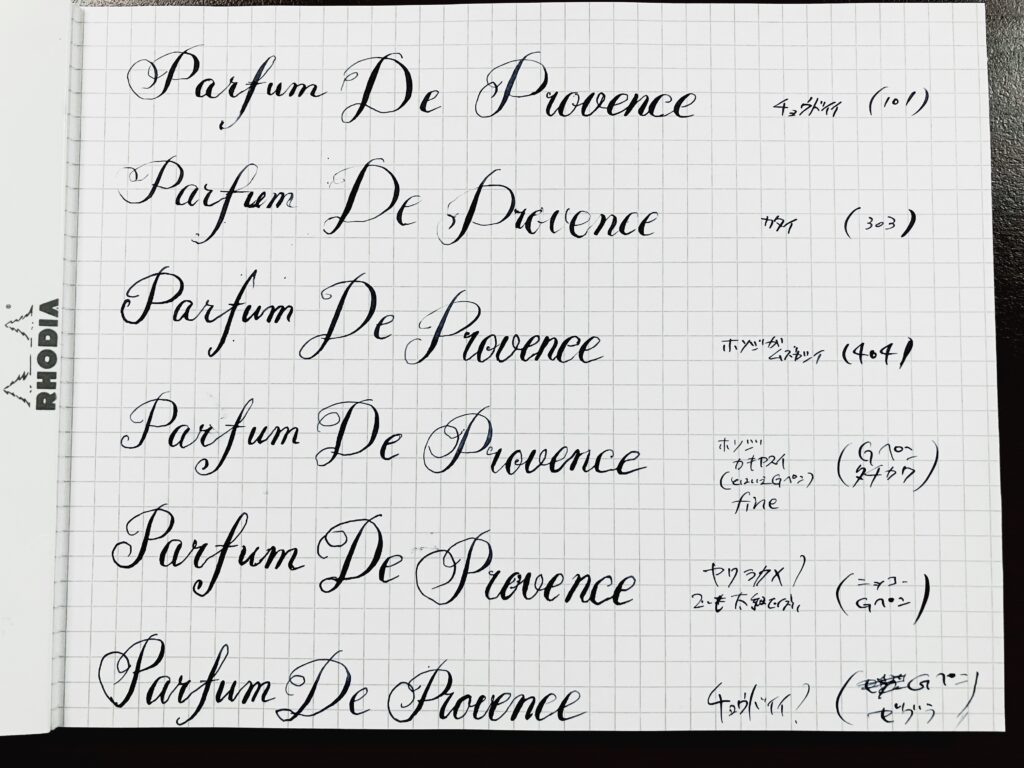 Parfum De Provence チョウドイイ (101)
Parfum De Provence カタイ (303)
Parfum De Provence ホソジガ
ムズカシイ (404)
RHODIA
Parfum De Provence ホソジ
カキヤスイ
(とはいえGペン)
fine
(Gペン
タチカワ)
Parfum De Provence ヤワラカメ!
(ニッコー
Gペン)
Parfum De Provence チョウドイイ!
(Gペン
ゼブラ)